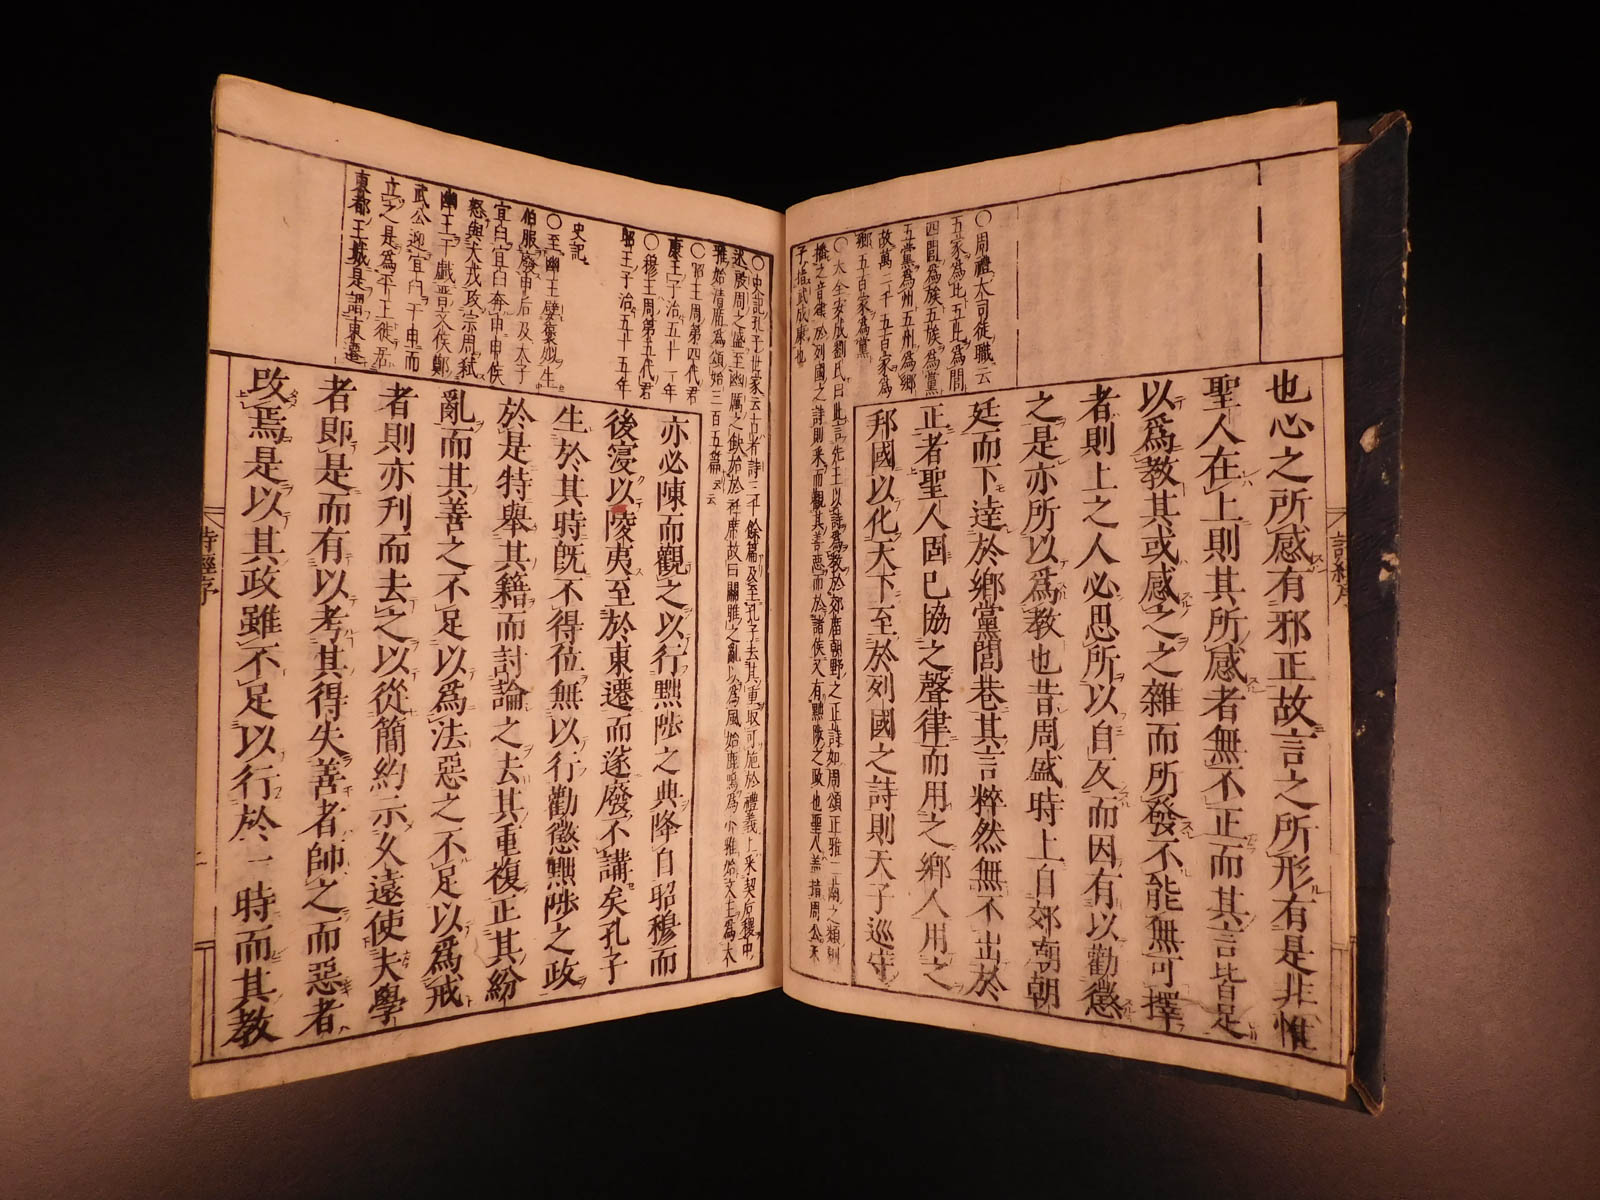 〇周禮大司徒職云
五家為比五比為閭
四閭為族五族為黨
五黨為州五州為鄉
故萬二千五百家為
鄉五百家為黨
〇大全安成劉氏曰此言先王以詩為教於郊廟朝野之正詩如周頌正雅二南之類
播之音律於列國之詩則采而觀其善惡而於諸侯又有黜陟之政也聖人盖指周公
子指武成康也
也心之所感有邪正故言之所形有是非惟
聖人在上則其所感者無不正而其言皆足
以爲教其或感之之雜而所發不能無可擇
者則上之人必思所以自反而因有以勸懲
之是亦所以爲教也昔周盛時上自郊廟朝
廷而下達於鄉黨閭巷其言粹然無不出於
正者聖人固已協之聲律而用之鄉人用之
邦國以化天下至於列國之詩則天子巡守
詩經序
〇史記孔子世家云古者詩三千餘篇及至孔子去其重取可施於禮義上采契后稷中
述殷周之盛至幽厲之缺始於衽席故曰關雎之亂以為風始鹿鳴為小雅始文王為大
雅始清廟為頌始三百五篇云云
〇昭王周第四代君
康王子治五十一年
〇穆王周第五代君
昭王子治五十五年
史記
〇至幽王嬖褒姒生
伯服廢申后及太子
宜臼宜臼奔申申侯
怒與犬戎攻宗周弑
幽王于戲晋文侯鄭
武公迎宜臼于申而
立之是為平王徙居
東都王城是謂東遷
亦必陳而觀之以行黜陟之典降自昭穆而
後寖以陵夷至於東遷而遂廢不講矣孔子
生於其時旣不得位無以行勸懲黜陟之政
於是特舉其籍而討論之去其重複正其紛
亂而其善之不足以爲法惡之不足以爲戒
者則亦刊而去之以從簡約示久遠使夫學
者即是而有以考其得失善者師之而惡者
攺焉是以其政雖不足以行於一時而其教
詩經序
二